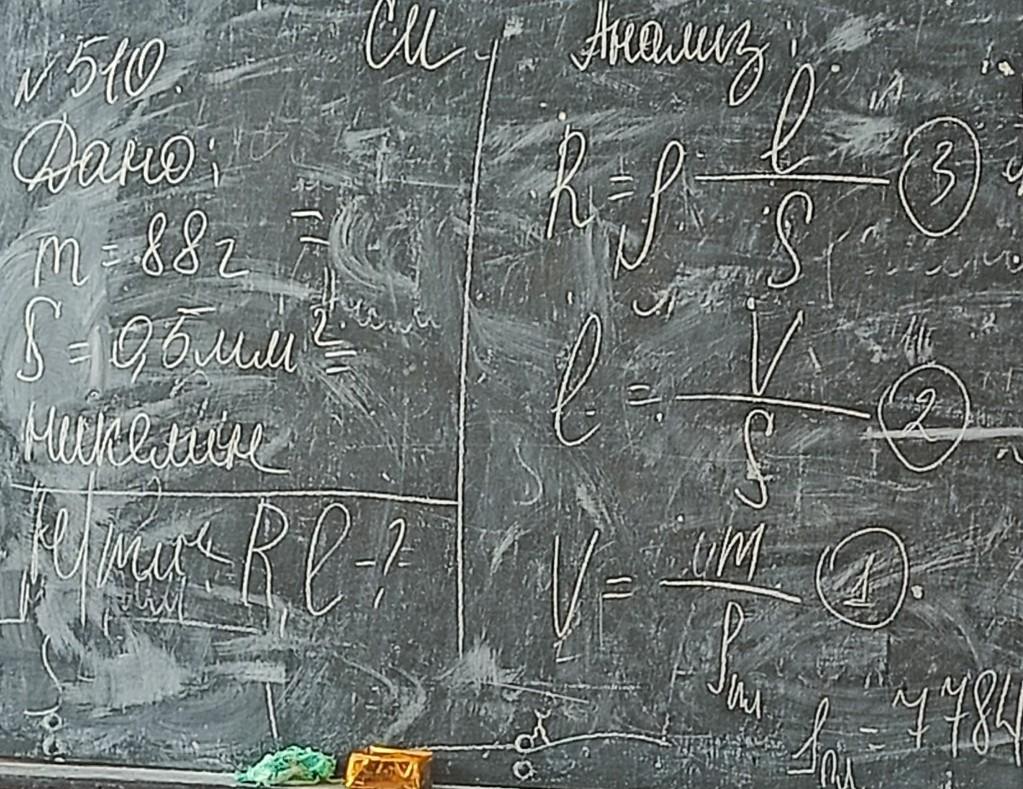 №510.
Дано:
m = 88г
S = 0,5мм²
никелин
R, l - ?
СИ
Анализ:
R = ρ l/S (3)
l = V/S (2)
V = m/ρm (1)